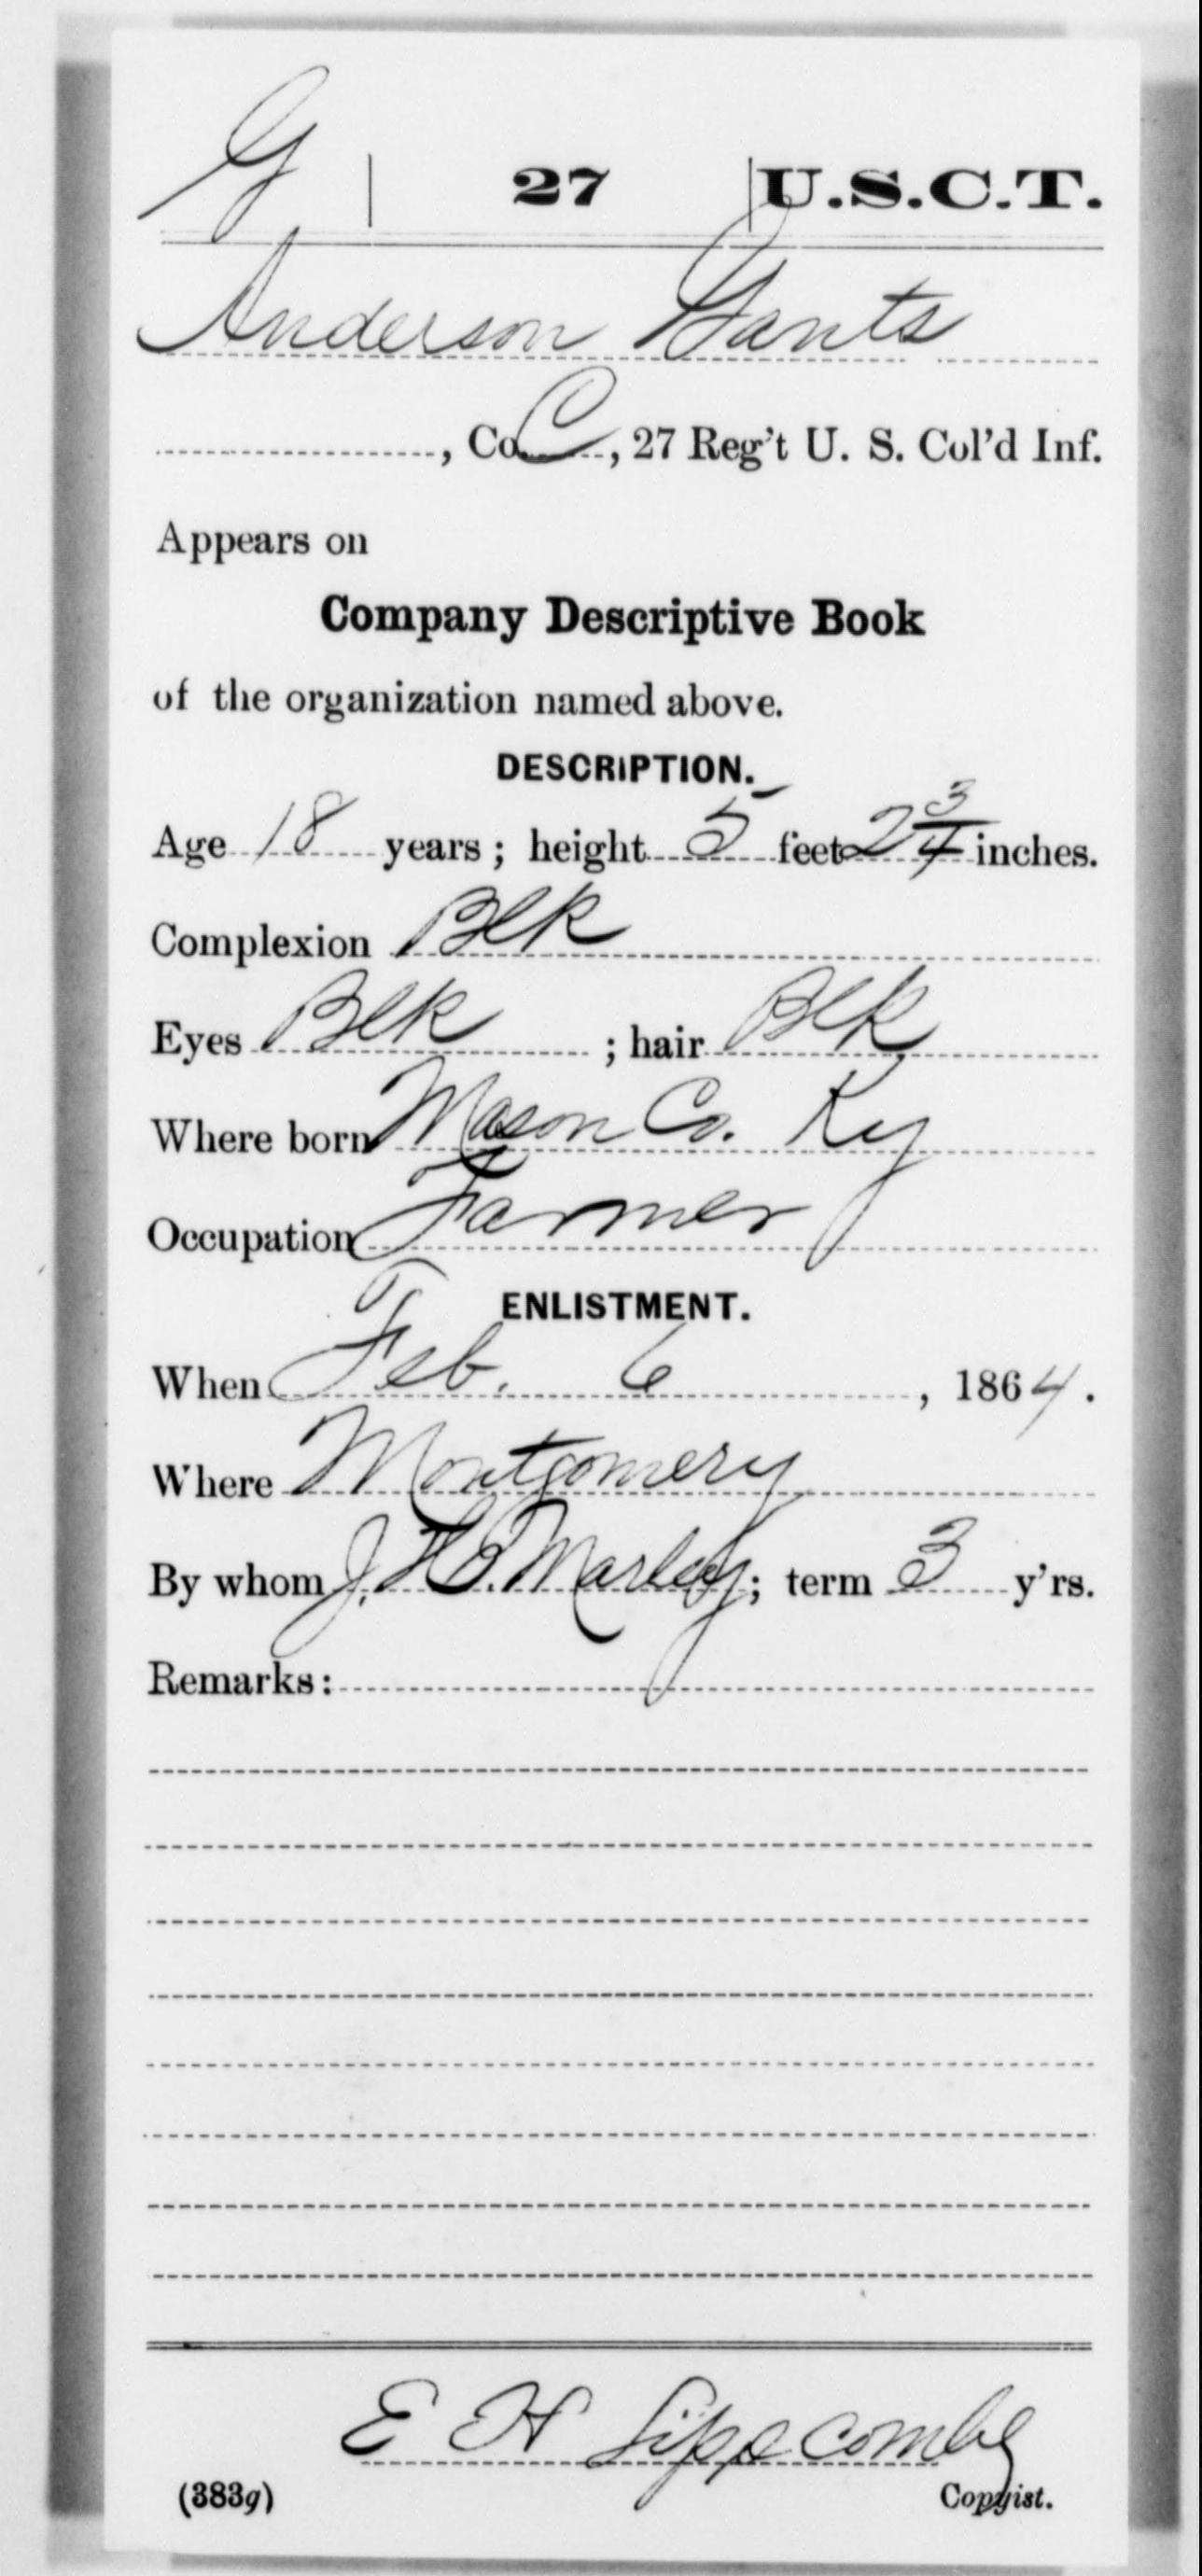 G | 27 | U.S.C.T.
Anderson Gants
, Co. C, 27 Reg't U. S. Col'd Inf.
Appears on
Company Descriptive Book
of the organization named above.
DESCRIPTION.
Age 18 years; height 5 feet 2 3/4 inches.
Complexion Blk
Eyes Blk ; hair Blk
Where born Mason Co. Ky
Occupation Farmer
ENLISTMENT.
When Feb. 6, 1864.
Where Montgomery
By whom J. H. B. Marley; term 3 y'rs.
Remarks:
E H Lippscombe
(383g) Copyist.